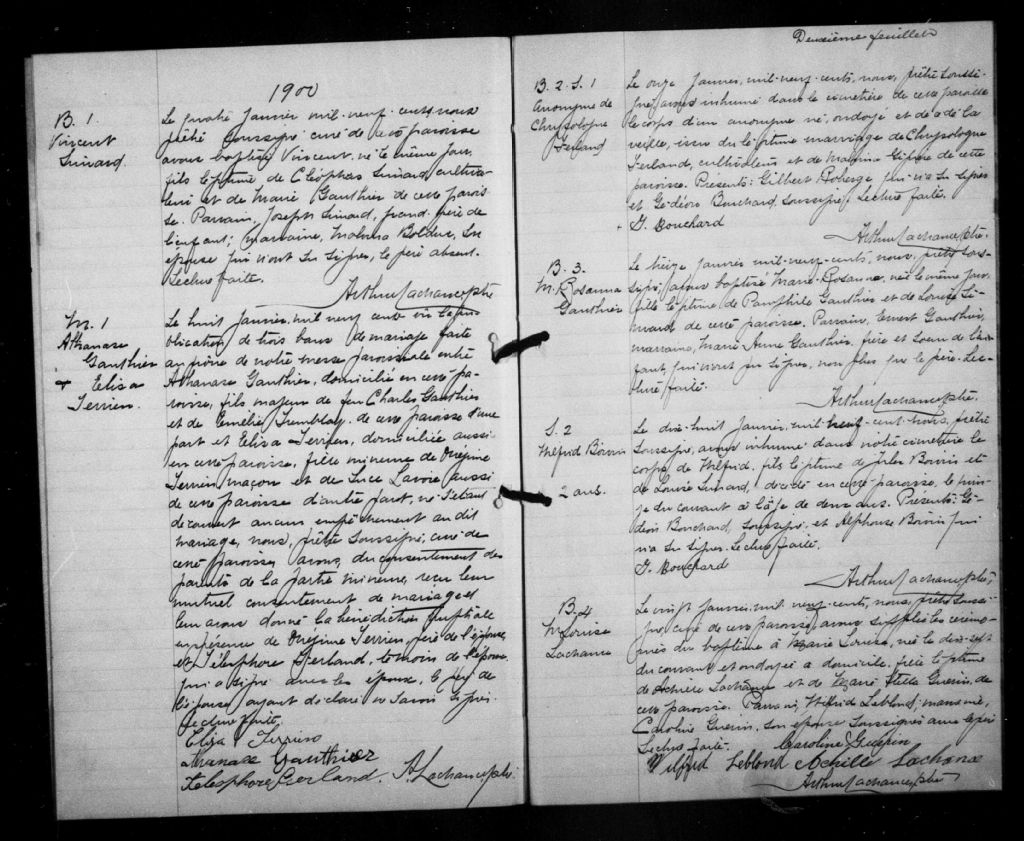 1900
B. 1
Vincent
Simard.
Le quatre Janvier mil-neuf-cents, nous
prêtre soussigné curé de cette paroisse
avons baptisé Vincent, né le même jour
fils légitime de Cléophas Simard cultiva-
teur et de Marie Gauthier de cette parois-
se. Parrain, Joseph Simard, grand-père de
l'enfant; marraine, Bolduc, son
épouse qui n'ont su signer, le père absent.
Lecture faite.
Arthur Lachance ptre
M. 1
Athanase
Gauthier
+ Elisa
Terrien.
Le huit Janvier, mil neuf cent vu la pu-
blication de trois bans de mariage faite
au prône de notre messe paroissiale entre
Athanase Gauthier, domicilié en cette pa-
roisse, fils majeur de feu Charles Gauthier
et de Emélie Tremblay de cette paroisse d'une
part et Elisa Terrien, domiciliée aussi
en cette paroisse, fille mineure de Onésime
Terrien maçon et de Luce Lavoie aussi
de cette paroisse d'autre part, ne s'étant
découvert aucun empêchement au dit
mariage, nous, prêtre soussigné, curé de
cette paroisse, avons, du consentement des
parents de la partie mineure, reçu leur
mutuel consentement de mariage et
leur avons donné la bénédiction nuptiale
en présence de Onésime Terrien, père de l'épouse
et Télesphore Ferland, témoin de l'époux
qui a signé avec les époux, le père de
l'épouse ayant déclaré ne savoir signer.
Lecture faite.
Elisa Terrien
Athanase Gauthier
Telesphore Ferland. A. Lachance ptre
Deuxième feuillet
B. 2. S. 1
Anonyme de
Chrysologue
Ferland
Le onze Janvier, mil-neuf-cents, nous, prêtre soussi-
gné, avons inhumé dans le cimetière de cette paroisse
le corps d'un anonyme né, ondoyé et décédé la
veille, issu du légitime mariage de Chrysologue
Ferland, cultivateur et de Gignac de cette
paroisse. Présents: Gilbert Roberge qui n'a su signer
et Gédéon Bouchard, soussigné. Lecture faite.
+ G. Bouchard
Arthur Lachance ptre.
B. 3.
M. Rosanna
Gauthier
Le treize Janvier mil-neuf-cents, nous, prêtre sous-
signé, avons baptisé Marie-Rosanna, née le même jour
fille légitime de Pamphile Gauthier et de Louise Si-
mard de cette paroisse. Parrain, Ernest Gauthier,
marraine, Marie Anne Gauthier, frère et soeur de l'en-
fant, qui n'ont pu signer, non plus que le père. Lec-
ture faite.
Arthur Lachance ptre.
S. 2
Wilfrid Boivin
2 ans.
Le dix-huit Janvier, mil-neuf-cent-nous, prêtre
soussigné, avons inhumé dans notre cimetière le
corps de Wilfrid, fils légitime de Jules Boivin et
de Louise Simard, décédé en cette paroisse, le quin-
ze du courant à l'âge de deux ans. Présents: Gé-
déon Bouchard, soussigné, et Alphonse Boivin qui
n'a su signer. Lecture faite.
G. Bouchard
Arthur Lachance ptre,
B. 4
M. Louise
Lachance
Le vingt Janvier, mil-neuf-cents, nous, prêtre soussi-
gné, curé de cette paroisse, avons suppléé les cérémo-
nies du baptême à Marie Louise, née le dix-sept
du courant et ondoyée à domicile, fille légitime
de Achille Lachance et de Marie Stella Guérin, de
cette paroisse. Parrain, Wilfrid Leblond; marraine,
Caroline Guérin, son épouse soussignés avec le père
Lecture faite. Caroline Guérin
Wilfrid Leblond Achille Lachance
Arthur Lachance ptre